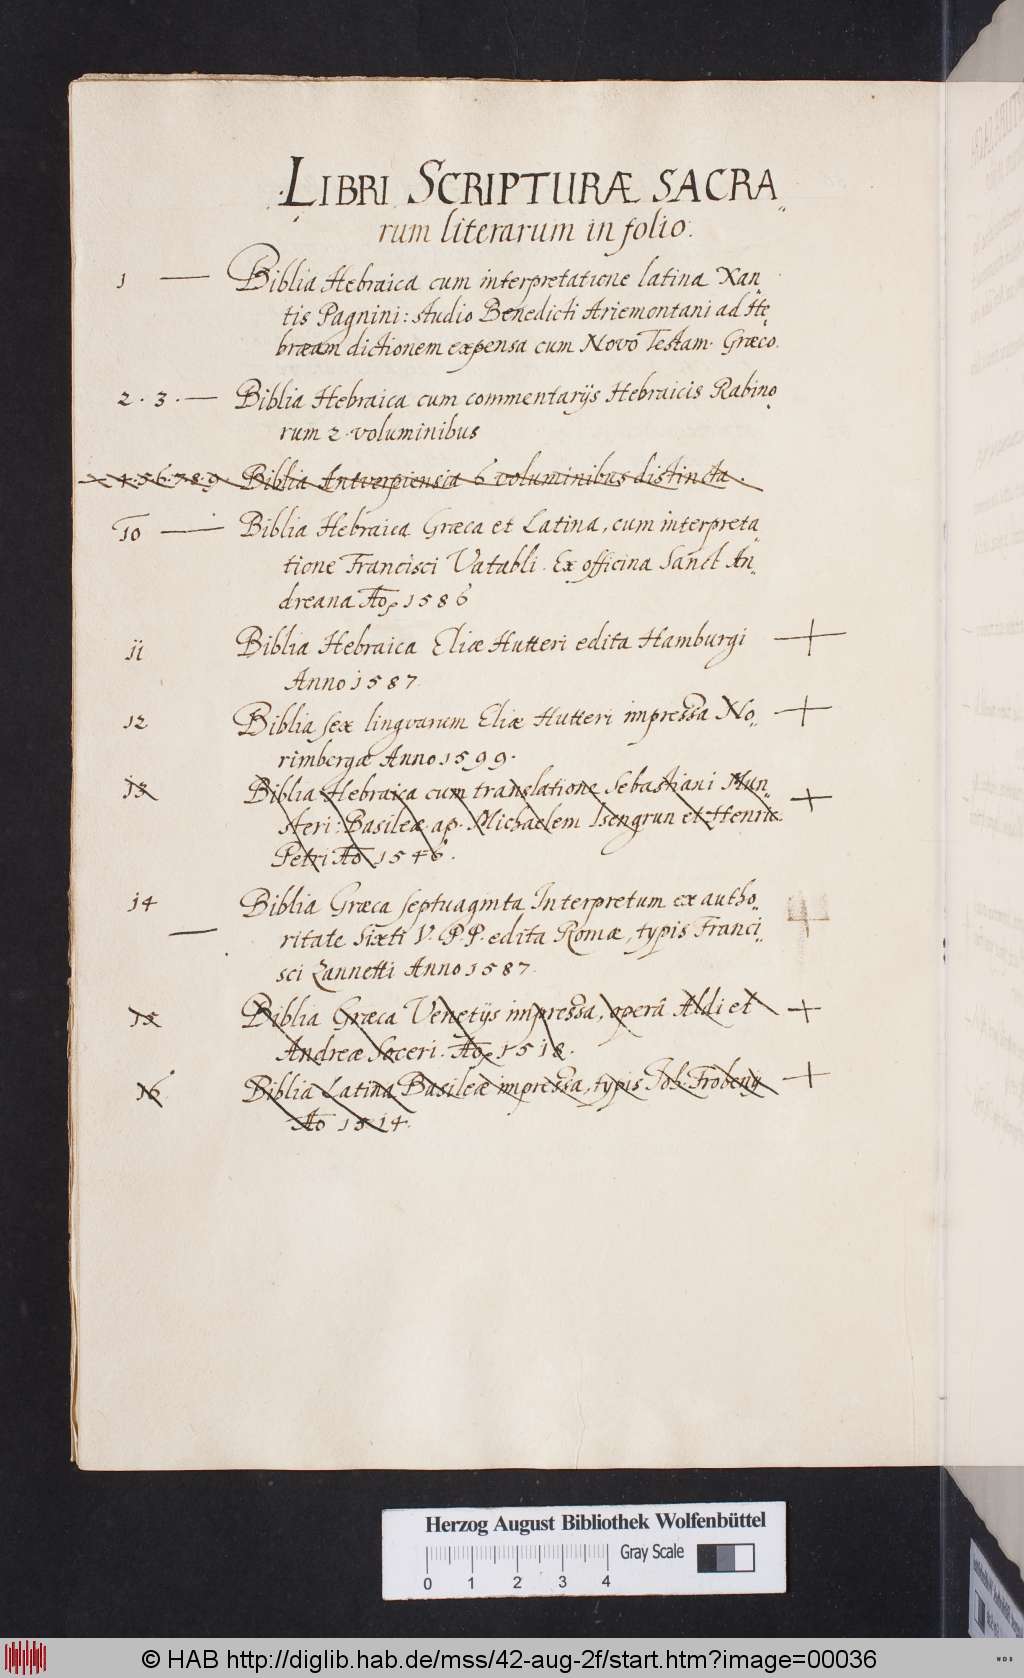 LIBRI SCRIPTURÆ SACRA„
rum literarum in folio.
1 — Biblia Hebraica cum interpretatione latina Xan„
tis Pagnini: studio Benedicti Ariemontani ad He„
bræam dictionem expensa cum Novo Testam. Græco.
2. 3. — Biblia Hebraica cum commentarijs Hebraicis Rabino„
rum 2. voluminibus
4. 5. 6. 7. 8. 9. Biblia Antverpiensia 6 voluminibus distincta.
10 — Biblia Hebraica Græca et Latina, cum interpreta„
tione Francisci Vatabli. Ex officina Sanct An„
dreana Ao. 1586
11 Biblia Hebraica Eliæ Hutteri edita Hamburgi +
Anno 1587.
12 Biblia sex linguarum Eliæ Hutteri impressa No„ +
rimbergæ Anno 1599.
13 Biblia Hebraica cum translatione Sebastiani Mun„ +
steri: Basileæ ap. Michaelem Isengrun et Henric.
Petri Ao 1546.
14 Biblia Græca septuaginta Interpretum ex autho„
— ritate Sixti V. P. P. edita Romæ, typis Franci„
sci Zannetti Anno 1587.
15 Biblia Græca Venetijs impressa, operâ Aldi et +
Andreæ Soceri. Ao. 1518.
16 Biblia Latina Basileæ impressa, typis Joh. Frobenij +
Ao 1514.
Herzog August Bibliothek Wolfenbüttel
Gray Scale
0 1 2 3 4
© HAB http://diglib.hab.de/mss/42-aug-2f/start.htm?image=00036